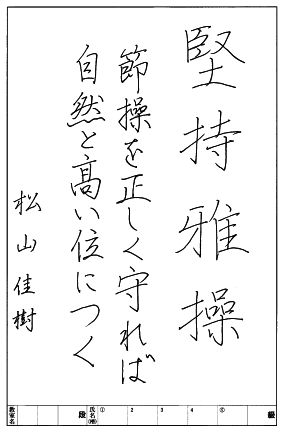 堅持雅操
節操を正しく守れば
自然と高い位につく
松山佳樹
級 ⑤ 4 3 2 ① 氏名(號) 段 教室名